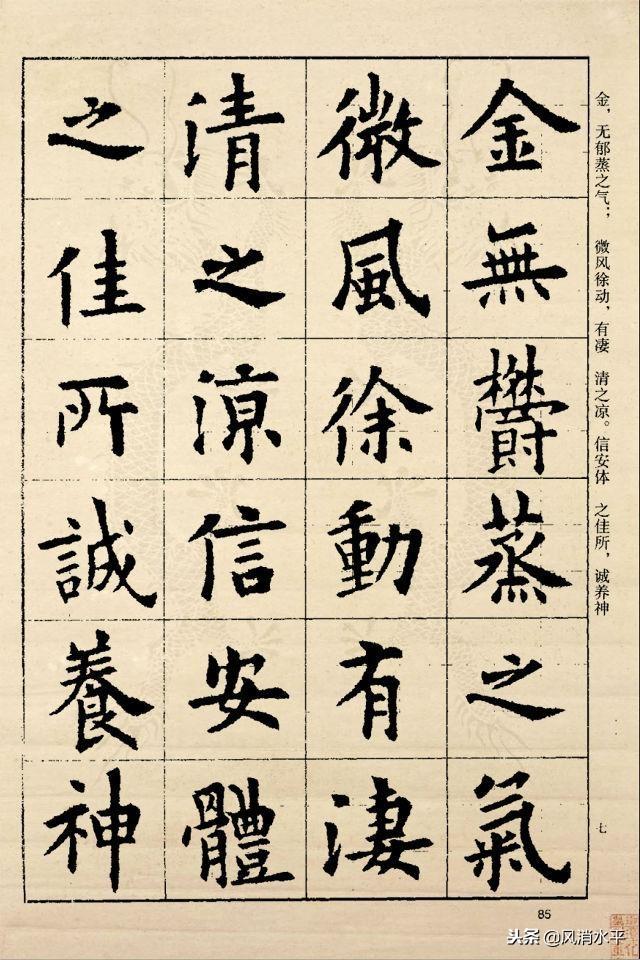 金無鬱蒸之氣
微風徐動有淒
清之涼信安體
之佳所誠養神
金，无郁蒸之气； 微风徐动，有凄 清之凉。信安体 之佳所，诚养神
七
85
头条@风消水平